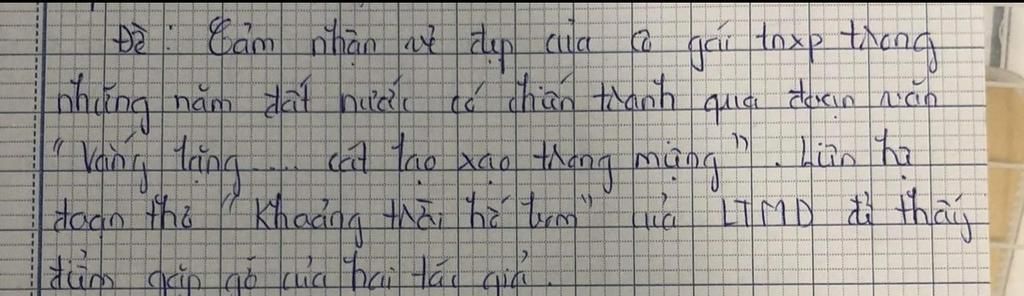 Đề: Cảm nhận vẻ đẹp của cô gái tnxp trong
những năm đất nước có chiến tranh qua đoạn văn
"Vắng lặng .... cát lạo xạo trong miệng". Liên hệ
đoạn thơ "Khoảng trời hố bom" của LTMD để thấy
điểm gặp gỡ của hai tác giả.